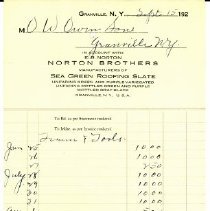 GRANVILLE, N. Y. Sept 12 192
M O. W. Owen Sons
Granville N.Y.
IN ACCOUNT WITH
E. B. NORTON
NORTON BROTHERS
MANUFACTURERS OF
SEA GREEN ROOFING SLATE
UNFADING GREEN AND PURPLE VARIEGATED
UNFADING MOTTLED GREEN AND PURPLE
MOTTLED GRAY SLATE
GRANVILLE, N. Y., U.S.A.
To Bill as per Statement rendered
To Mdse. as per Invoice rendered
& Tools
June 25 10 00
10 00
July 28 10 00
29 10 00
30 10 00
31 10 00
10 00